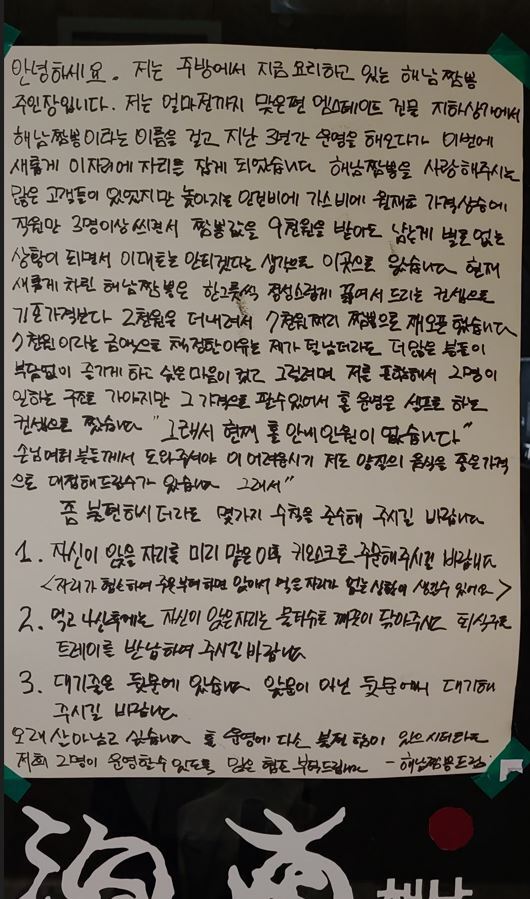 안녕하세요. 저는 주방에서 지금 요리하고 있는 해남짬뽕
주인장입니다. 저는 얼마전까지 맞은편 엠스테이트 건물 지하상가에서
해남짬뽕이라는 이름을 걸고 지난 3년간 운영을 해오다가 이번에
새롭게 이자리에 자리를 잡게 되었습니다 해남짬뽕을 사랑해주시는
많은 고객들이 있었지만 높아지는 인건비에 가스비에 원재료 가격상승에
직원만 3명이상 쓰면서 짬뽕값을 9천원을 받아도 남는게 별로 없는
상황이 되면서 이대로는 안되겠다는 생각으로 이곳으로 왔습니다 현재
새롭게 차린 해남짬뽕은 한그릇씩 정성스럽게 끓여서 드리는 컨셉으로
기존가격보다 2천원을 더내려서 7천원짜리 짬뽕으로 재오픈 했습니다
7천원이라는 금액으로 책정한이유는 제가 덜남더라도 더많은 분들이
부담없이 즐기게 하고 싶은 마음이 컸고 그럴려며 저를 포함해서 2명이
일하는 구조로 가야지만 그 가격으로 팔수있어서 홀 운영을 셀프로 하는
컨셉으로 짰습니다 "그래서 현재 홀 안내 인원이 없습니다"
손님여러분들께서 도와주셔야 이 어려운시기 저도 양질의 음식을 좋은가격
으로 대접해드릴수가 있습니다 그래서"
좀 불편하시더라도 몇가지 수칙을 준수해 주시길 바랍니다
1. 자신이 앉을 자리를 미리 맡은이후 키오스크로 주문해주시길 바랍니다
<자리가 협소하여 주문부터하면 앉아서 먹을 자리가 없는 상황이 생길수 있어요>
2. 먹고 나신후에는 자신이 앉은자리는 물티슈로 깨끗이 닦아주시고 퇴식구로
트레이를 반납하여 주시길바랍니다
3. 대기줄은 뒷문에 있습니다 앞문이 아닌 뒷문에서 대기해
주시길 바랍니다
오래 살아남고 싶습니다 홀 운영에 다소 불편 함이 있으시더라도
저희 2명이 운영할수 있도록 많은 협조 부탁드립니다 - 해남짬뽕드림
海南 해남